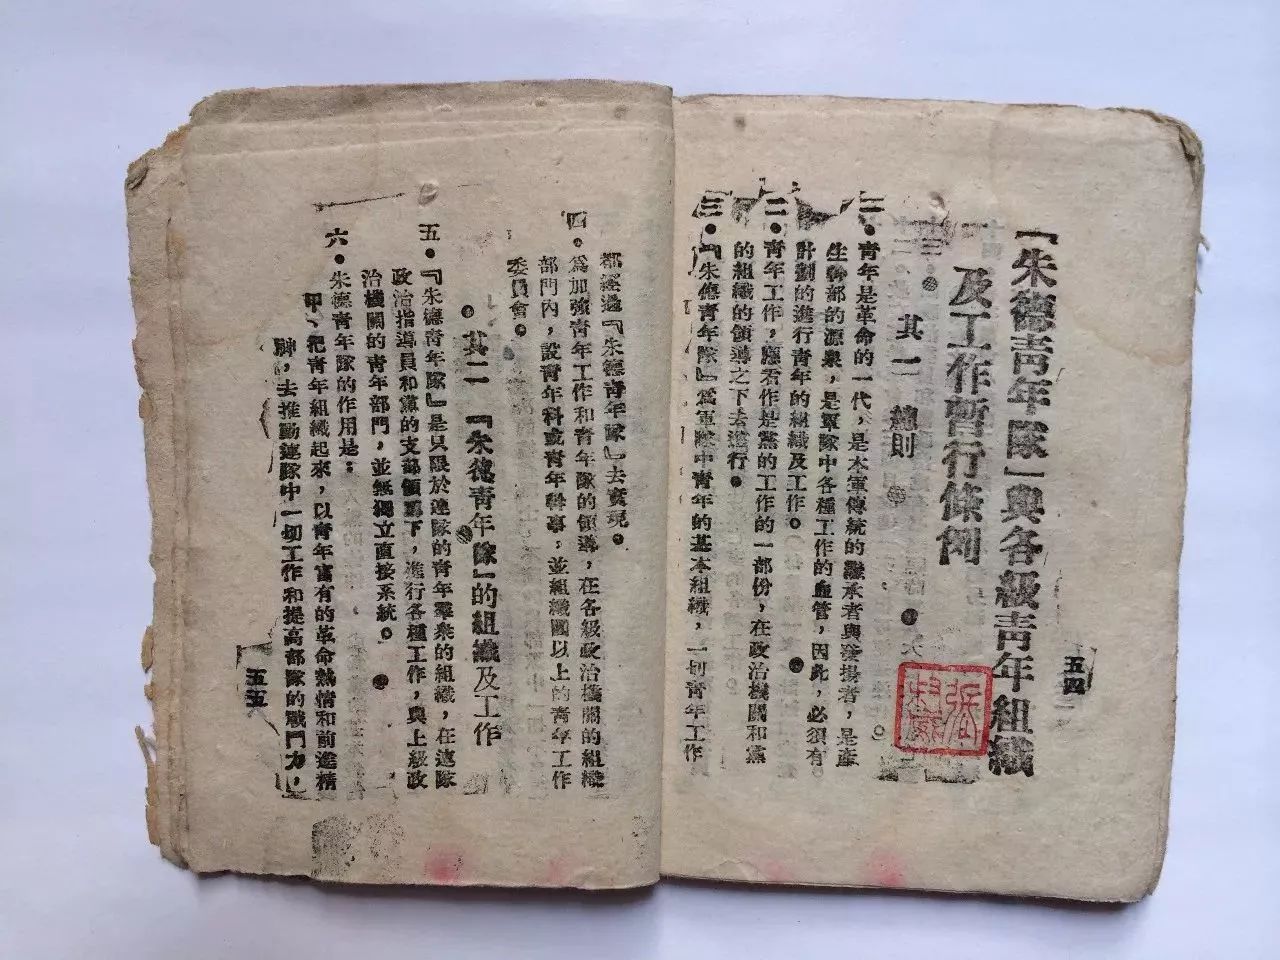 『朱德青年隊』與各級青年組織
及工作暫行條例
其一　總則
一．青年是革命的一代，是本軍傳統的繼承者與發揚者，是產
生幹部的源泉，是軍隊中各種工作的血管，因此，必須有
計劃的進行青年的組織及工作。
二．青年工作，應看作是黨的工作的一部份，在政治機關和黨
的組織的領導之下去進行。
三．『朱德青年隊』為軍隊中青年的基本組織，一切青年工作
五四
都經過『朱德青年隊』去實現。
四．為加強青年工作和青年隊的領導，在各級政治機關的組織
部門內，設青年科或青年幹事，並組織團以上的青年工作
委員會。
其二　『朱德青年隊』的組織及工作
五．『朱德青年隊』是只限於連隊的青年羣衆的組織，在連隊
政治指導員和黨的支部領導下，進行各種工作，與上級政
治機關的青年部門，並無獨立直接系統。
六．朱德青年隊的作用是：
甲、把青年組織起來，以青年富有的革命熱情和前進精
神，去推動連隊中一切工作和提高部隊的戰鬥力，
五五